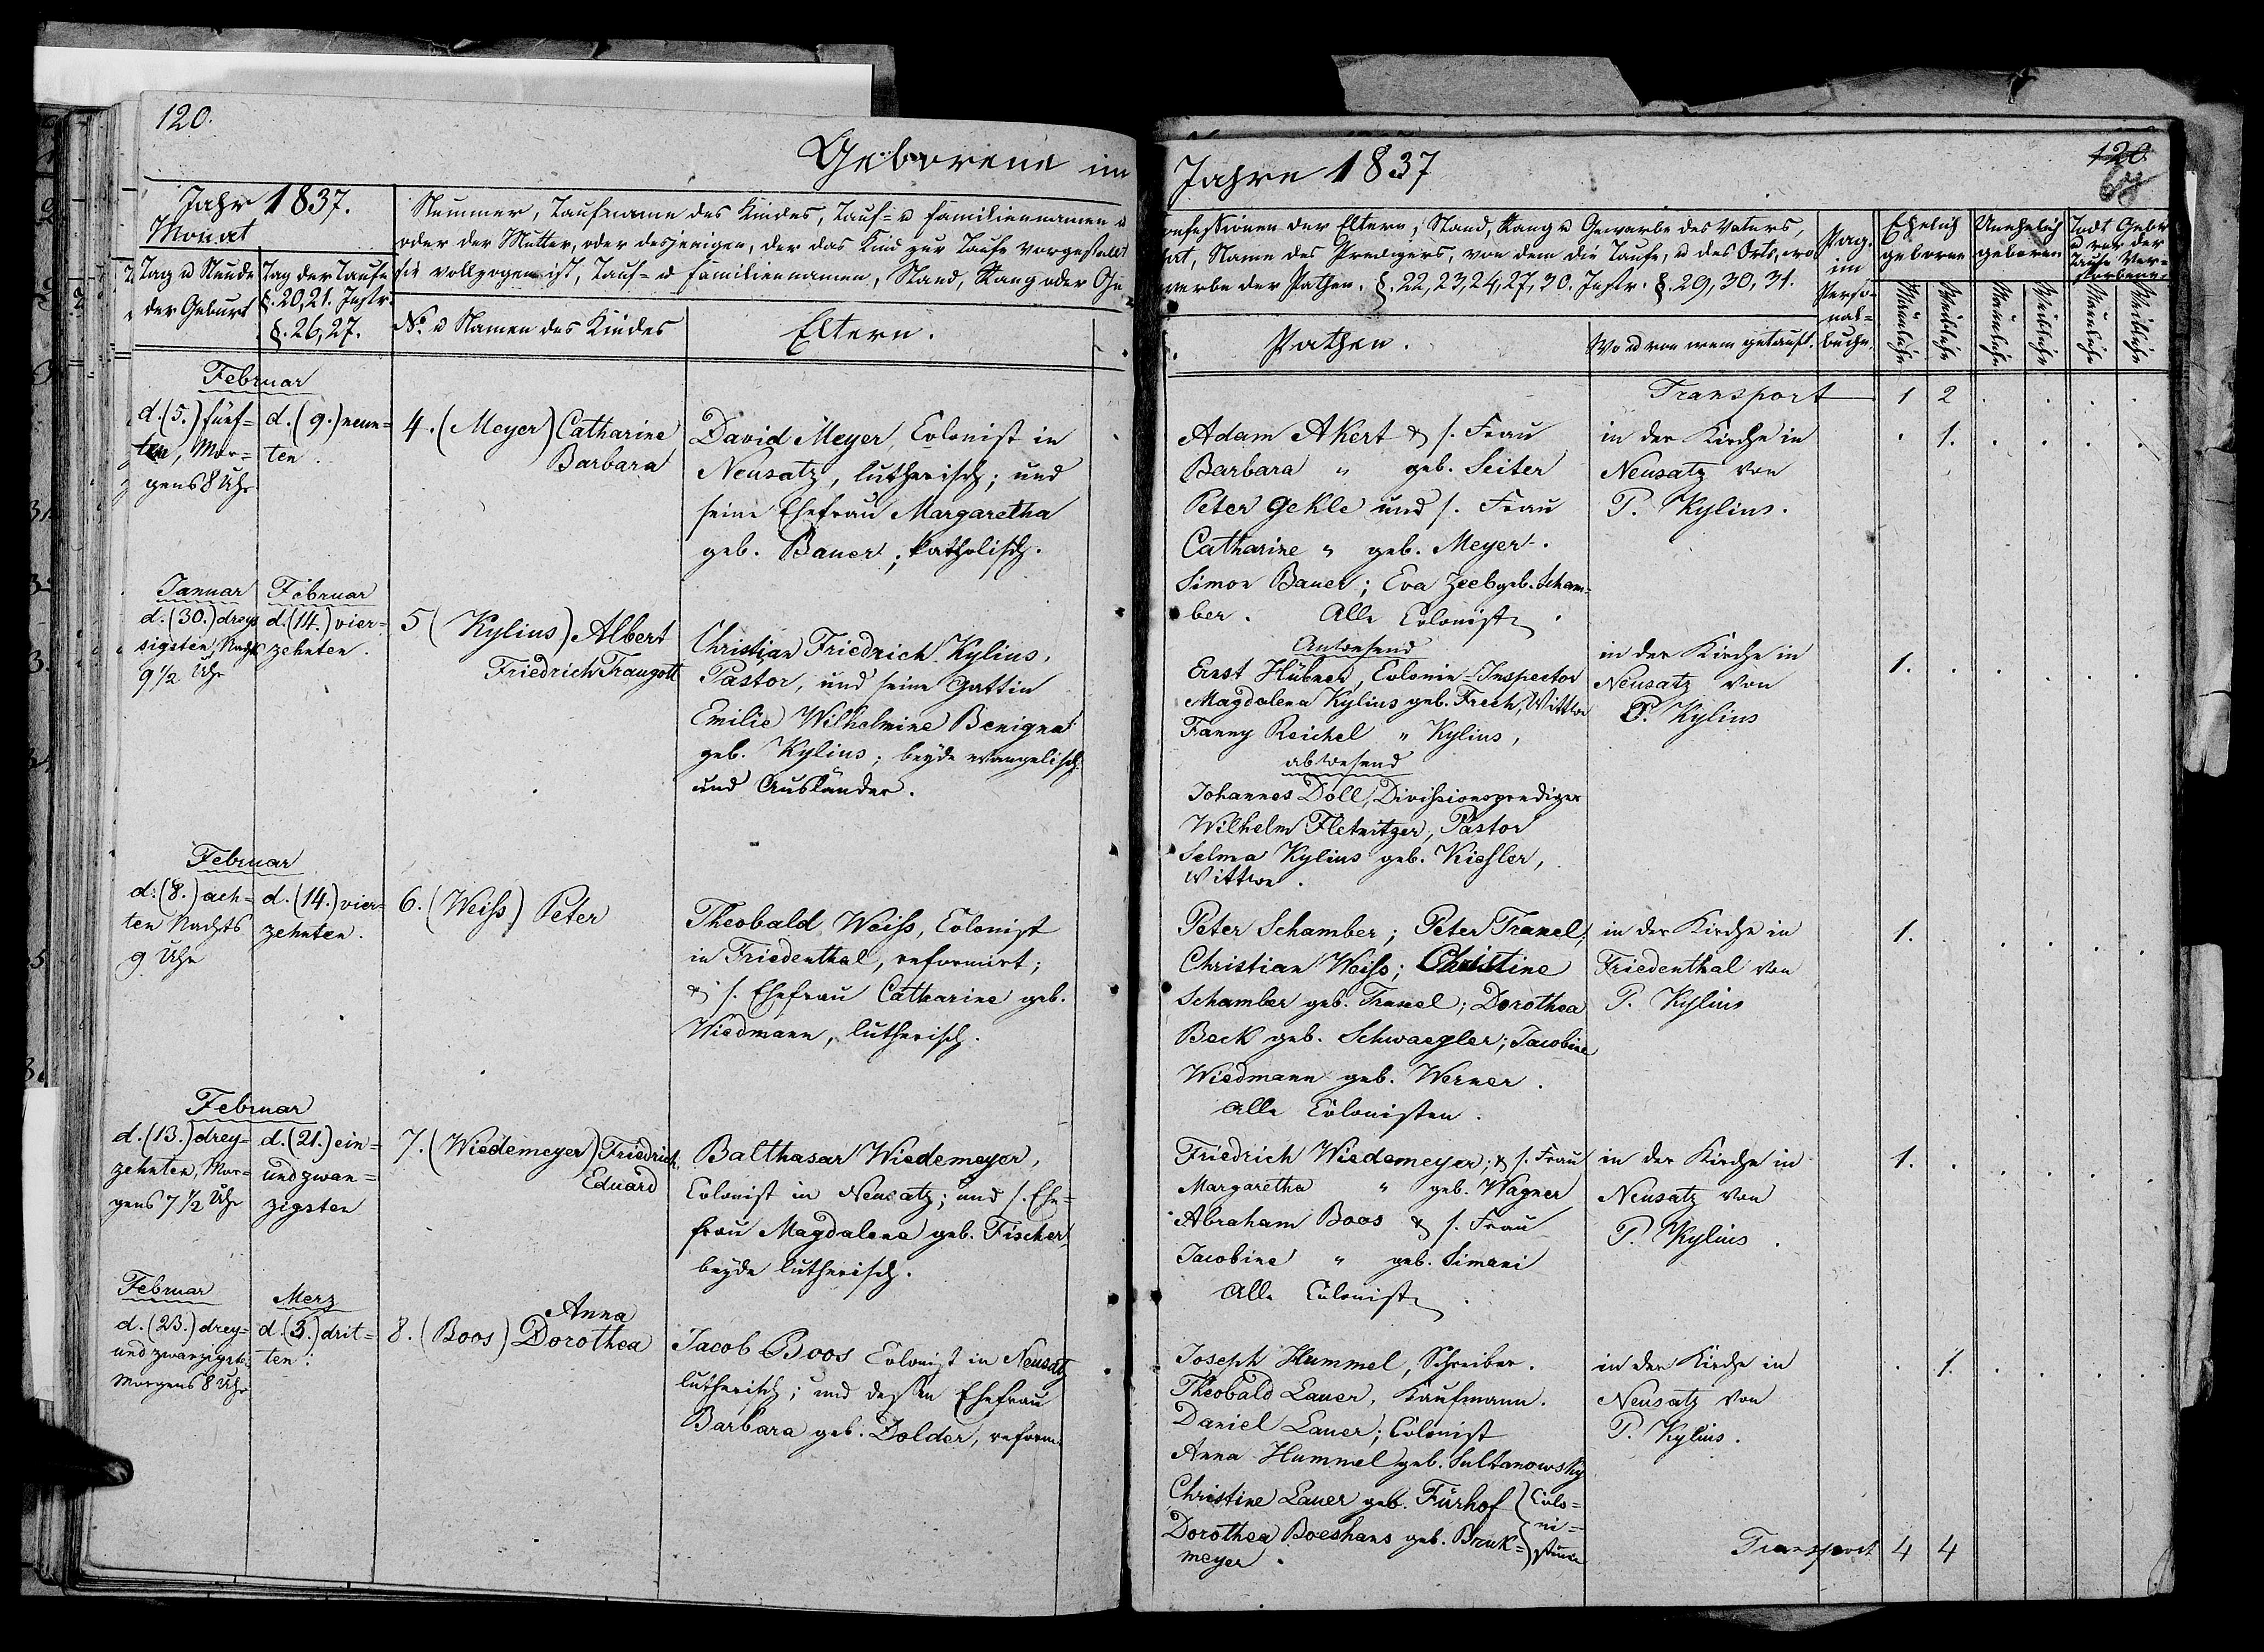 120.
Geborene im
Jahr 1837.
Monat
Nummer, Taufname des Kindes, Tauf- u Familiennamen d
oder der Mutter, oder desjenigen, der das Kind zur Taufe vorgestellt
sie vollzogen ist, Tauf- u Familiennamen, Stand, Rang oder Ge
Tag u Stunde
der Geburt
Tag der Taufe
§. 20, 21. Instr.
§. 26, 27.
No. u Namen des Kindes
Eltern.
Februar
d. (5.) fünf=
ten, Mor=
gens 8 Uhr
d. (9.) neun=
ten.
4. (Meyer) Catharine
Barbara
David Meyer, Colonist in
Neusatz, lutherisch; und
seine Ehefrau Margaretha
geb. Bauer; katholisch.
Januar
d. (30.) dreys
sigsten, Nachts
9 1/2 Uhr
Februar
d. (14.) vier=
zehnten.
5 (Kylius) Albert
Friedrich Traugott
Christian Friedrich Kylius,
Pastor, und seine Gattin
Emilie Wilhelmine Benigna
geb. Kylius; beyde evangelisch
und Ausländer.
Februar
d. (8.) ach=
ten Nachts
9 Uhr
d. (14.) vier=
zehnten.
6. (Weiss) Peter
Theobald Weiss, Colonist
in Friedenthal, reformirt;
& s. Ehefrau Catharine geb.
Wiedmann, lutherisch.
Februar
d. (13.) drey=
zehnten, Mor=
gens 7 1/2 Uhr
d. (21.) ein=
und zwan=
zigsten
7. (Wiedemeyer) Friedrich
Eduard
Balthasar Wiedemeyer,
Colonist in Neusatz; und s. Ehe=
frau Magdalena geb. Fischer
beyde lutherisch.
Februar
d. (23.) drey=
und zwanzigsten
Morgens 8 Uhr
Merz
d. (3.) drit=
ten.
8. (Boos) Anna
Dorothea
Jacob Boos Colonist in Neusatz
lutherisch; und dessen Ehefrau
Barbara geb. Dolder, reform.
Jahre 1837
120
onfessionen der Eltern, Stand, Rang u Gewerbe des Vaters,
Name des Predigers, von dem die Taufe, u des Orts, wo
werbe der Pathen. §. 22, 23, 24, 27, 30. Instr. §. 29, 30, 31.
Pathen.
Wo u von wem getauft.
Pag.
im
Perso=
nal=
buche.
Ehelich
geborne
Unehelich
geboren
Todt Gebr
u vor der
Taufe Ver=
storbene.
Männliche
Weibliche
Männliche
Weibliche
Männliche
Weibliche
Transport 1 2
Adam Akert & s. Frau
Barbara " geb. Seiter
Peter Gekle und s. Frau
Catharine " geb. Meyer.
Simon Bauer; Eva Zeeb geb. Scham=
ber. Alle Colonisten.
in der Kirche in
Neusatz von
P. Kylius.
1.
Anwesend
Ernst Hübner, Colonie=Inspector
Magdalena Kylius geb. Frech, Wittwe
Fanny Reichel " Kylius,
abwesend
Johannes Doll, Divisionsprediger
Wilhelm Fletnitzer, Pastor
Selma Kylius geb. Kiessler,
Wittwe.
in der Kirche in
Neusatz von
P. Kylius
1.
Peter Schamber; Peter Franel;
Christian Weiss; Christine
Schamber geb. Franel; Dorothea
Beck geb. Schwaegler; Jacobine
Wiedmann geb. Werner.
Alle Colonisten.
in der Kirche in
Friedenthal von
P. Kylius
1.
Friedrich Wiedemeyer; & s. Frau
Margaretha " geb. Wagner
Abraham Boos & s. Frau
Jacobine " geb. Simani
Alle Colonisten.
in der Kirche in
Neusatz von
P. Kylius.
1.
Joseph Hummel, Schreiber.
Theobald Lauer, Kaufmann.
Daniel Lauer; Colonist
Anna Hummel geb. Sultanowsky
Christine Lauer geb. Fürhof
Dorothea Boeshans geb. Bruk=
meyer.
Colo=
ni=
in der Kirche in
Neusatz von
P. Kylius.
1.
Transport 4 4